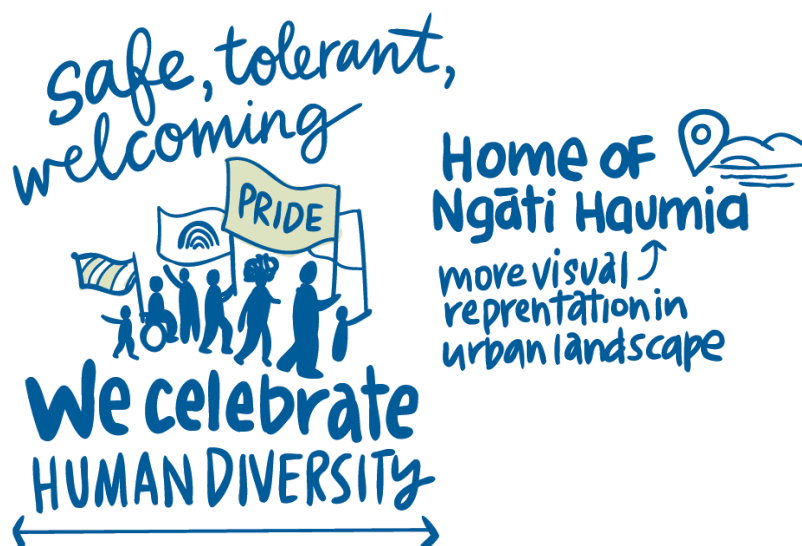 safe, tolerant,
welcoming
PRIDE
We celebrate
HUMAN DIVERSITY
Home OF
Ngāti Haumia
more visual
reprentation in
urban landscape